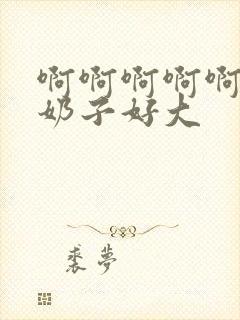 啊啊啊啊啊
奶子好大
裘梦